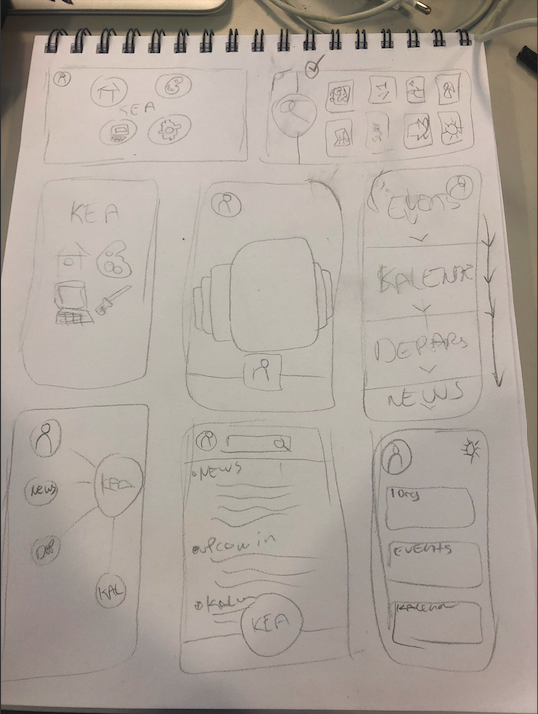 KEA
KEA
EVENTS
KALENDER
DEPARs
NEWS
KEA
NEWS
DEP
KAL
NEWS
UPCOMIN
KALEN
KEA
IDag
EVENTS
KALENDER